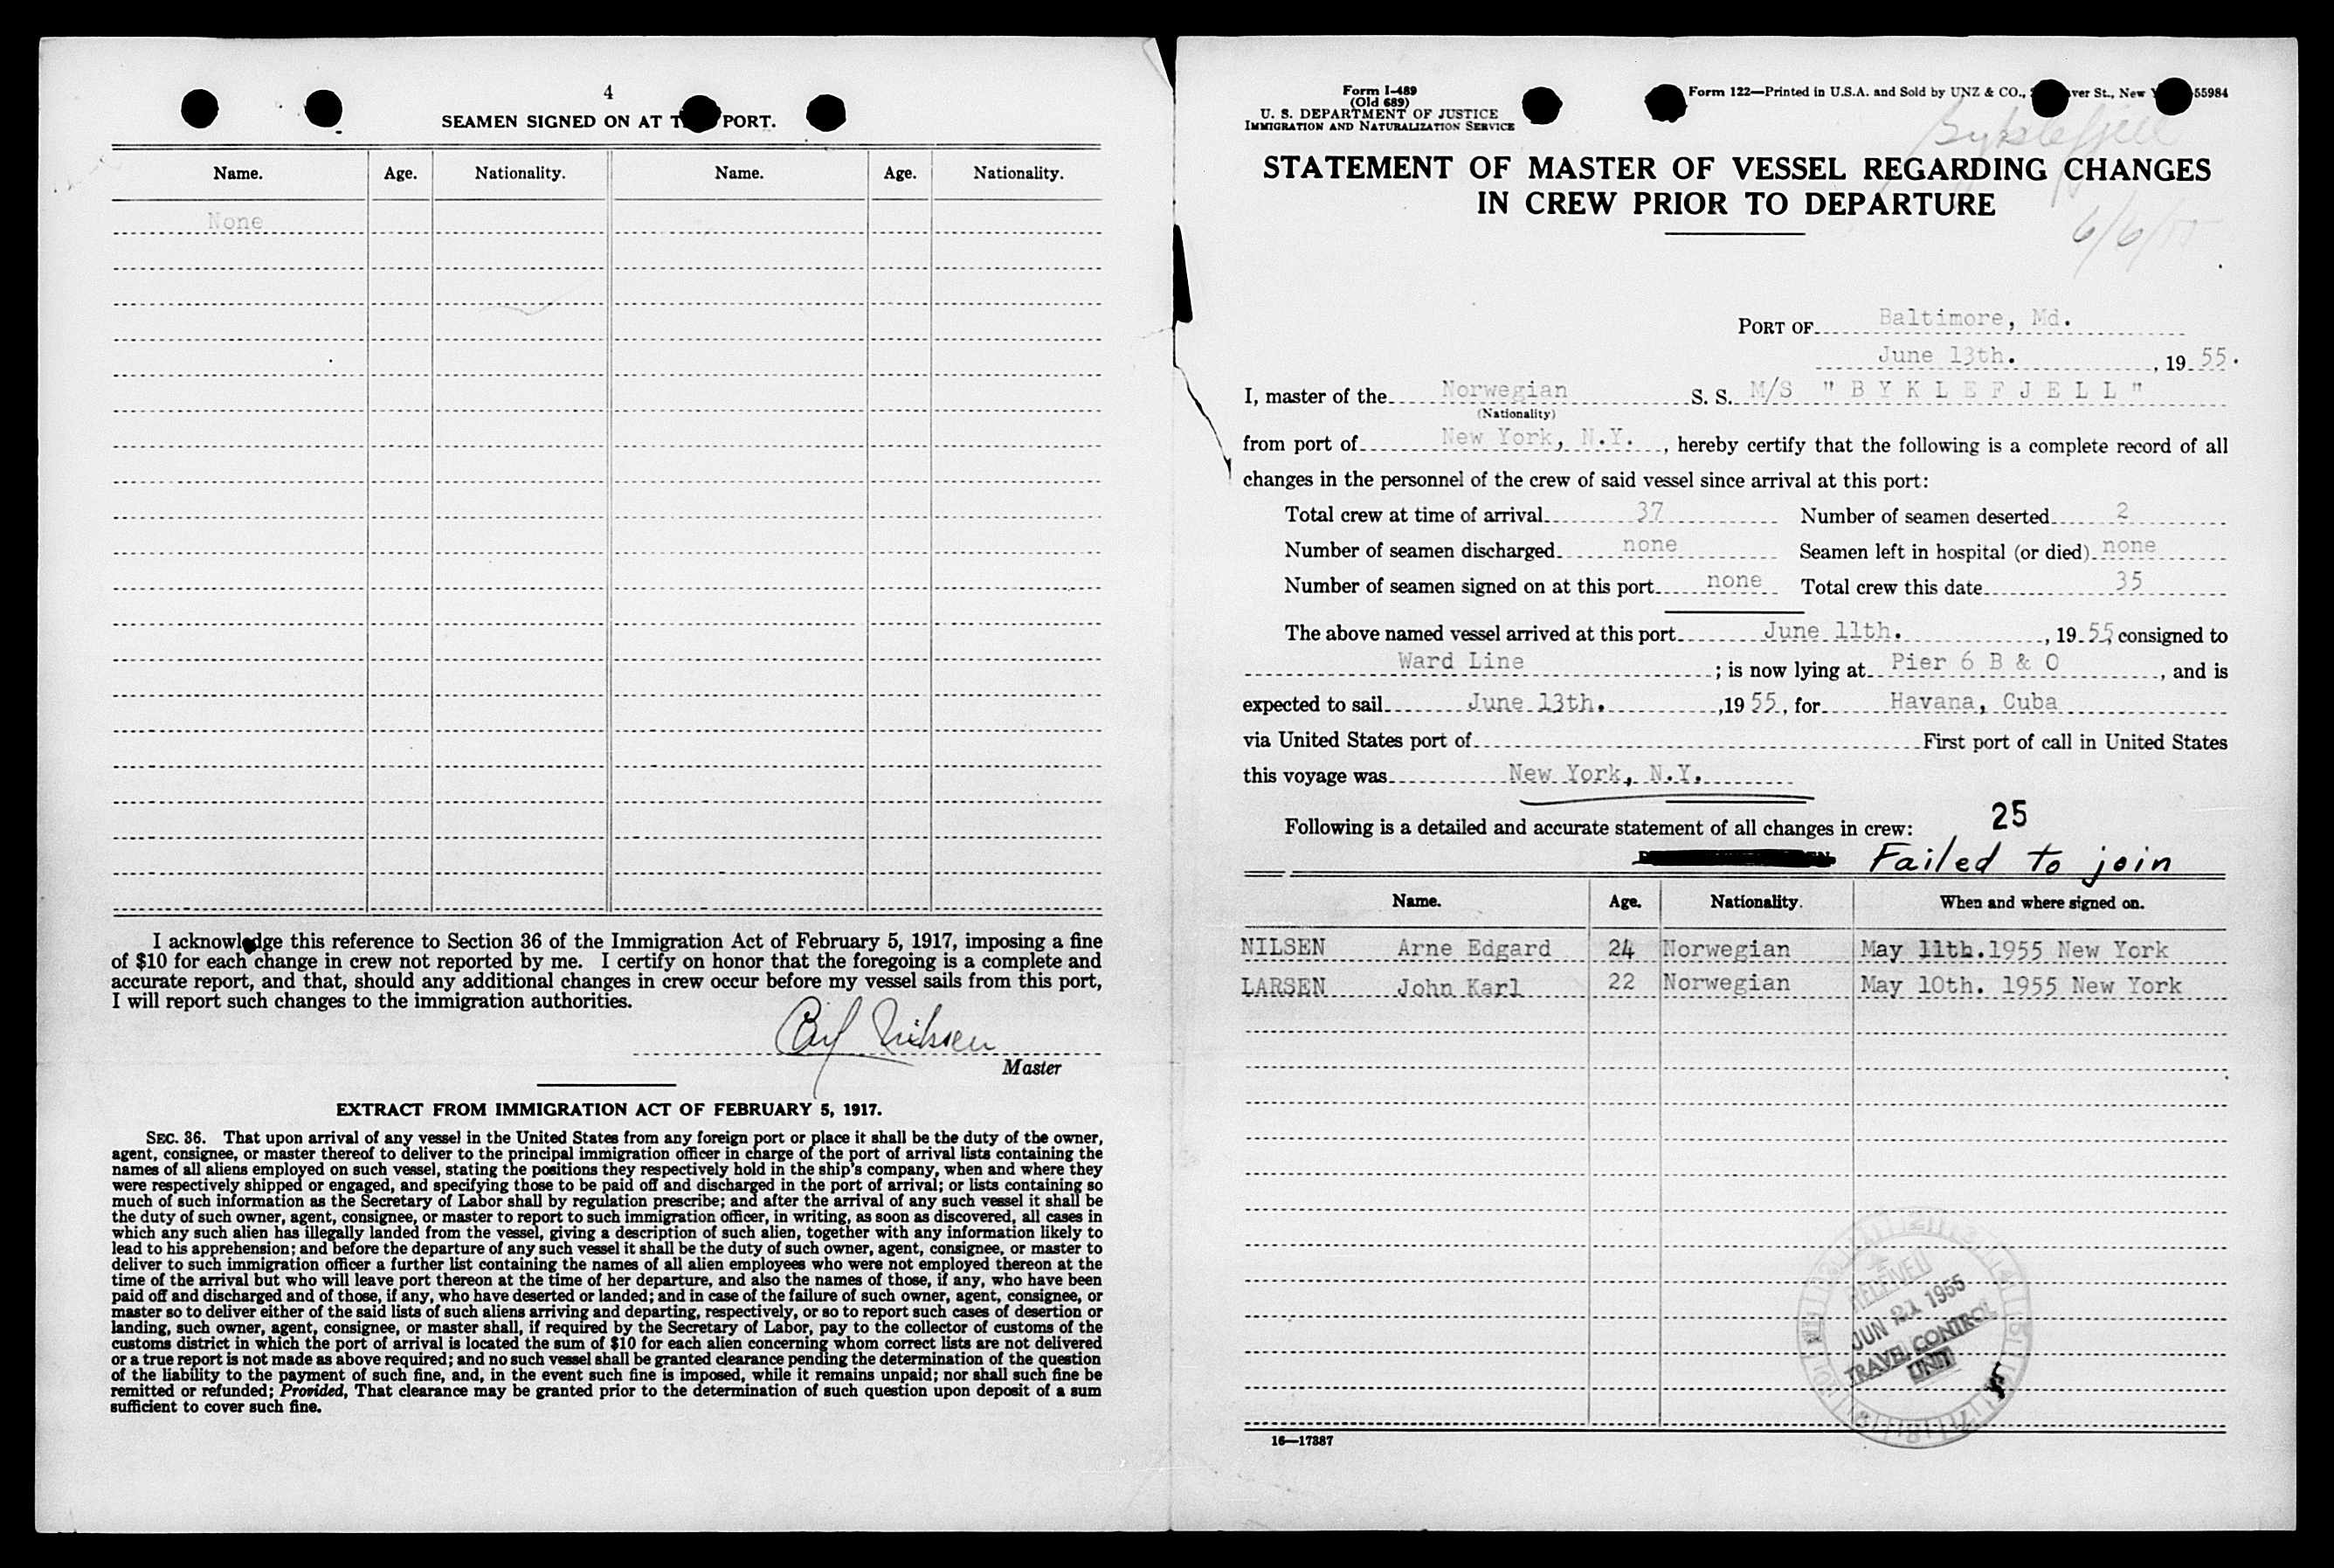 4
SEAMEN SIGNED ON AT T PORT.
Name. Age. Nationality. Name. Age. Nationality.
None
I acknowledge this reference to Section 36 of the Immigration Act of February 5, 1917, imposing a fine
of $10 for each change in crew not reported by me. I certify on honor that the foregoing is a complete and
accurate report, and that, should any additional changes in crew occur before my vessel sails from this port,
I will report such changes to the immigration authorities.
Nilsen
Master
EXTRACT FROM IMMIGRATION ACT OF FEBRUARY 5, 1917.
SEC. 36. That upon arrival of any vessel in the United States from any foreign port or place it shall be the duty of the owner,
agent, consignee, or master thereof to deliver to the principal immigration officer in charge of the port of arrival lists containing the
names of all aliens employed on such vessel, stating the positions they respectively hold in the ship's company, when and where they
were respectively shipped or engaged, and specifying those to be paid off and discharged in the port of arrival; or lists containing so
much of such information as the Secretary of Labor shall by regulation prescribe; and after the arrival of any such vessel it shall be
the duty of such owner, agent, consignee, or master to report to such immigration officer, in writing, as soon as discovered, all cases in
which any such alien has illegally landed from the vessel, giving a description of such alien, together with any information likely to
lead to his apprehension; and before the departure of any such vessel it shall be the duty of such owner, agent, consignee, or master to
deliver to such immigration officer a further list containing the names of all alien employees who were not employed thereon at the
time of the arrival but who will leave port thereon at the time of her departure, and also the names of those, if any, who have been
paid off and discharged and of those, if any, who have deserted or landed; and in case of the failure of such owner, agent, consignee, or
master so to deliver either of the said lists of such aliens arriving and departing, respectively, or so to report such cases of desertion or
landing, such owner, agent, consignee, or master shall, if required by the Secretary of Labor, pay to the collector of customs of the
customs district in which the port of arrival is located the sum of $10 for each alien concerning whom correct lists are not delivered
or a true report is not made as above required; and no such vessel shall be granted clearance pending the determination of the question
of the liability to the payment of such fine, and, in the event such fine is imposed, while it remains unpaid; nor shall such fine be
remitted or refunded; Provided, That clearance may be granted prior to the determination of such question upon deposit of a sum
sufficient to cover such fine.
Form I-489
(Old 689)
U. S. DEPARTMENT OF JUSTICE
IMMIGRATION AND NATURALIZATION SERVICE
Form 122—Printed in U.S.A. and Sold by UNZ & CO., ver St., New 55984
Byklefjell
STATEMENT OF MASTER OF VESSEL REGARDING CHANGES
IN CREW PRIOR TO DEPARTURE
6/6/55
PORT OF Baltimore, Md.
June 13th. , 19 55.
I, master of the Norwegian S. S. M/S " B Y K L E F J E L L "
(Nationality)
from port of New York, N.Y. , hereby certify that the following is a complete record of all
changes in the personnel of the crew of said vessel since arrival at this port:
Total crew at time of arrival 37 Number of seamen deserted 2
Number of seamen discharged none Seamen left in hospital (or died) none
Number of seamen signed on at this port none Total crew this date 35
The above named vessel arrived at this port June 11th. , 19 55, consigned to
Ward Line ; is now lying at Pier 6 B & O , and is
expected to sail June 13th. ,19 55, for Havana, Cuba
via United States port of First port of call in United States
this voyage was New York, N.Y.
25
Following is a detailed and accurate statement of all changes in crew:
Failed to join
Name. Age. Nationality. When and where signed on.
NILSEN Arne Edgard 24 Norwegian May 11th.1955 New York
LARSEN John Karl 22 Norwegian May 10th. 1955 New York
RECEIVED
JUN 21 1955
TRAVEL CONTROL
UNIT
16—17387